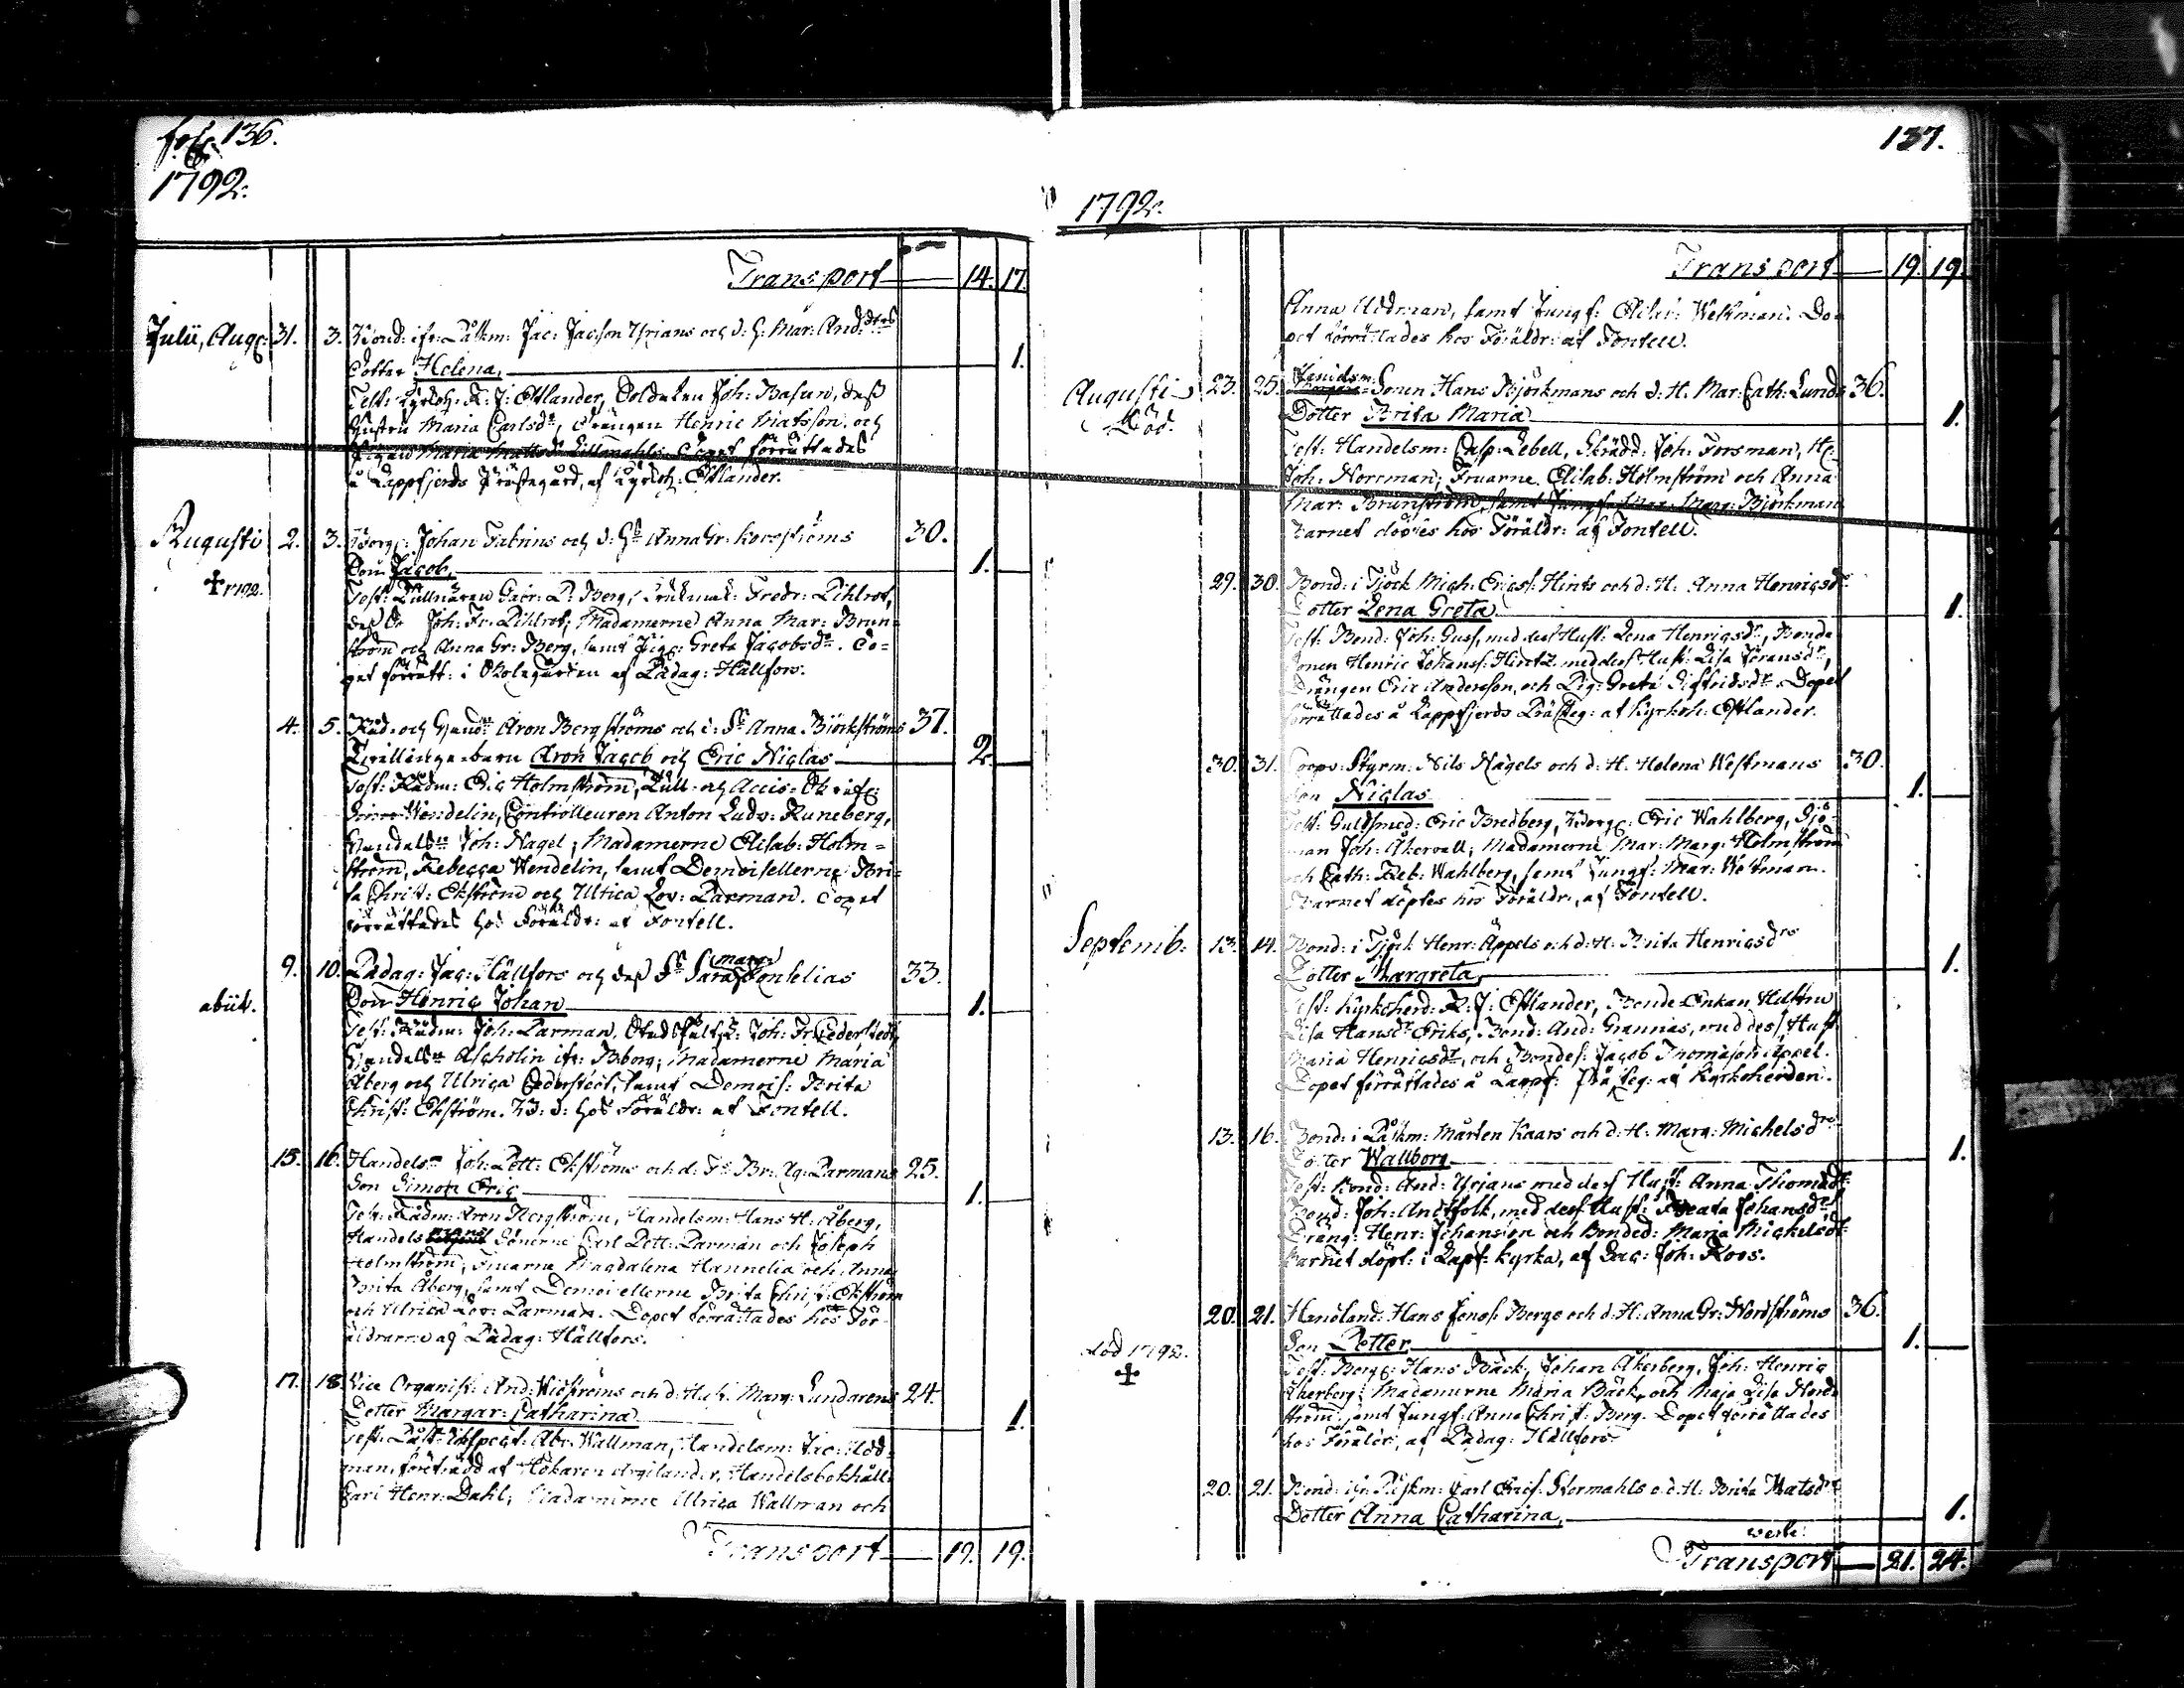 fol. 136.
1792.
Transport — 14. 17.
Julii, Aug: 31. 3. Bond: ifr: Låskm: Jac: Jacsson Yrians och d: H: Mar: And:dtrs
Dotter Helena, 1.
Test: Kyrkoh: R: J: Estlander, Soldaten Joh: Basun, dess
hustru Maria Carlsdr, Drängen Henric Matsson och
Pigan Maria Mattsdr Dopet förrättades
å Lappfjerds Prästegård, af Kyrkoh: Estlander.
Augusti 2. 3. Borg: Johan Fabrins och d: Hu Anna Gr: 30.
Son Jacob, 1.
✝ 1792.
Test: Tullnären Gabr: P: Berg, Fredr: Pihlrot,
dess Joh: Fr: Pihlrot, Madamerne Anna Mar: Brun-
ström och Anna Gr: Berg, samt Pig: Greta Jacobsdr. Do-
pet förrätt: i Skolegården af Pädag: Hällfors.
4. 5. Råd- och Hand: Aron Bergströms och d: Fr Anna Björkströms 37.
Tvillinge-barn Aron Jacob och Eric Niclas 2.
Test: Rådm: Eric Holmström, Tull- och Accis-
Wendelin, Controlleuren Anton Ludv: Runeberg,
Joh: Nagel; Madamerne Elisab: Holm-
ström, Rebecca Wendelin, samt Demoisellerne Bri-
ta Christ: Ekström och Ulrica Lov: Parman. Dopet
förrättades hos Föräldr: af Fontell.
9. 10. Pädag: Jac: Hällfors och dess Fr Sara Marg: 33.
Son Henric Johan 1.
abiit.
Test: Rådm: Joh: Parman, Joh: Fr: Cederstedt,
Ascholin ifr: Bborg; Madamerne Maria
Åberg och Ulrica Cederstedt, samt Demois: Brita
Christ: Ekström. B: d: hos Föräldr: af Fontell.
15. 16. Handels: Joh: Pett: Ekströms och d: Fr Br: Ag: Parmans 25.
Son Simon Eric 1.
Test: Rådm: Aron Bergström, Handelsm: Hans H: Åberg,
Handelsmans Sönerne Carl Pett: Parman och Joseph
Holmström; Fruarne Magdalena Hannelia och Anna
Brita Åberg, samt Demoisellerne Brita Christ: Ekström
och Ulrica Lov: Parman. Dopet förrättades hos För-
äldrarne af Pädag: Hällfors.
17. 18. Vice Organist: And: Widströms och d: Hust: Marg: Lundgrens 24.
Dotter Margar: Catharina 1.
Test: Abr: Wallman, Handelsm: Jac: Nod-
man, företrädd af Hökaren Argilander, Handelsbokhåll:
Carl Henr: Dahl; Madamerne Ulrica Wallman och
Transport — 19. 19.
137.
1792.
Transport — 19. 19.
Anna Nodman, samt Jungf: Wekman. Do-
pet förrättades hos Föräldr: af Fontell.
Augusti 23. 25. Sonen Hans Björkmans och d: H. Mar: Cath: Lunds 36.
Död. Dotter Brita Maria 1.
Test: Handelsm: Casp: Lebell, Skrädd: Joh: Forsman, H:
Joh: Norrman; Fruarne Elisab: Holmström och Anna
Mar: Brunström, samt Jungf: Mar: Marg: Björkman
Barnet döptes hos Föräldr: af Fontell.
29. 30. Bond: i Tjöck Mich: Ericss: Hints och d: H: Anna Henricsdr
Dotter Lena Greta 1.
Test: Bond: Joh: Guss, med dess Hust: Lena Henricsdr, Bonde
Sonen Henric Johanss: Hintz med dess Hust: Lisa Göransdr,
Drängen Eric Andersson, och Pig: Greta Sigfridsdr. Dopet
förrättades å Lappfjerds Prästeg: af Kyrkoh: Estlander.
30. 31. Coopv: Styrm: Nils Nagels och d: H: Helena Westmans 30.
Son Niclas 1.
Test: Guldsmed: Eric Bredberg, Borg: Eric Wahlberg, Sjö-
man Joh: Åkervall; Madamerne Mar: Marg: Holmström
och Cath: Reb: Wahlberg, samt Jungf: Mar: Westman.
Barnet döptes hos Föräldr:, af Fontell.
Septemb: 13. 14. Bond: i Tjöck Henr: Äppels och d: H: Brita Henricsdrs
Dotter Margreta, 1.
Test: Kyrkoherd: R: J: Estlander, Bonde-Enkan Hustru
Lisa Hansdr Eriks, Bond: And: Grannas, med dess Hust:
Maria Henricsdr, och Bondes: Jacob Thomasson Äppel.
Dopet förrättades å Lappf: Prästeg: af Kyrkoherden.
13. 16. Bond: i Låskm: Mårten Kaars och d: H: Marg: Michelsdrs
Dotter Wallborg 1.
Test: Bond: And: Yrjans med dess Hust: Anna Thomsdr
Bond: Joh: Anttfolk, med dess Hust: Beata Johansdr,
Dräng: Henr: Johansson och Bonded: Maria Michelsdr
Barnet döpt: i Lapf: Kyrka, af Sac: Joh: Roos.
20. 21. Handland: Hans Jenss: Bergs och d: H: Anna Gr: Nordströms 36.
Son Petter 1.
död 1792.
✝
Test: Borg: Hans Bäck, Johan Åkerberg, Joh: Henric
Åkerberg; Madamerne Maria Bäck, och Maja Lisa Nord-
ström, samt Jungf: Anna Christ: Berg. Dopet förrättades
hos Föräldr:, af Pädag: Hällfors.
20. 21. Bond: ifr: Låskm: Carl Ericss: Stormahls o. d: H: Brita Matsdr
Dotter Anna Catharina, 1.
verte
Transport — 21. 24.